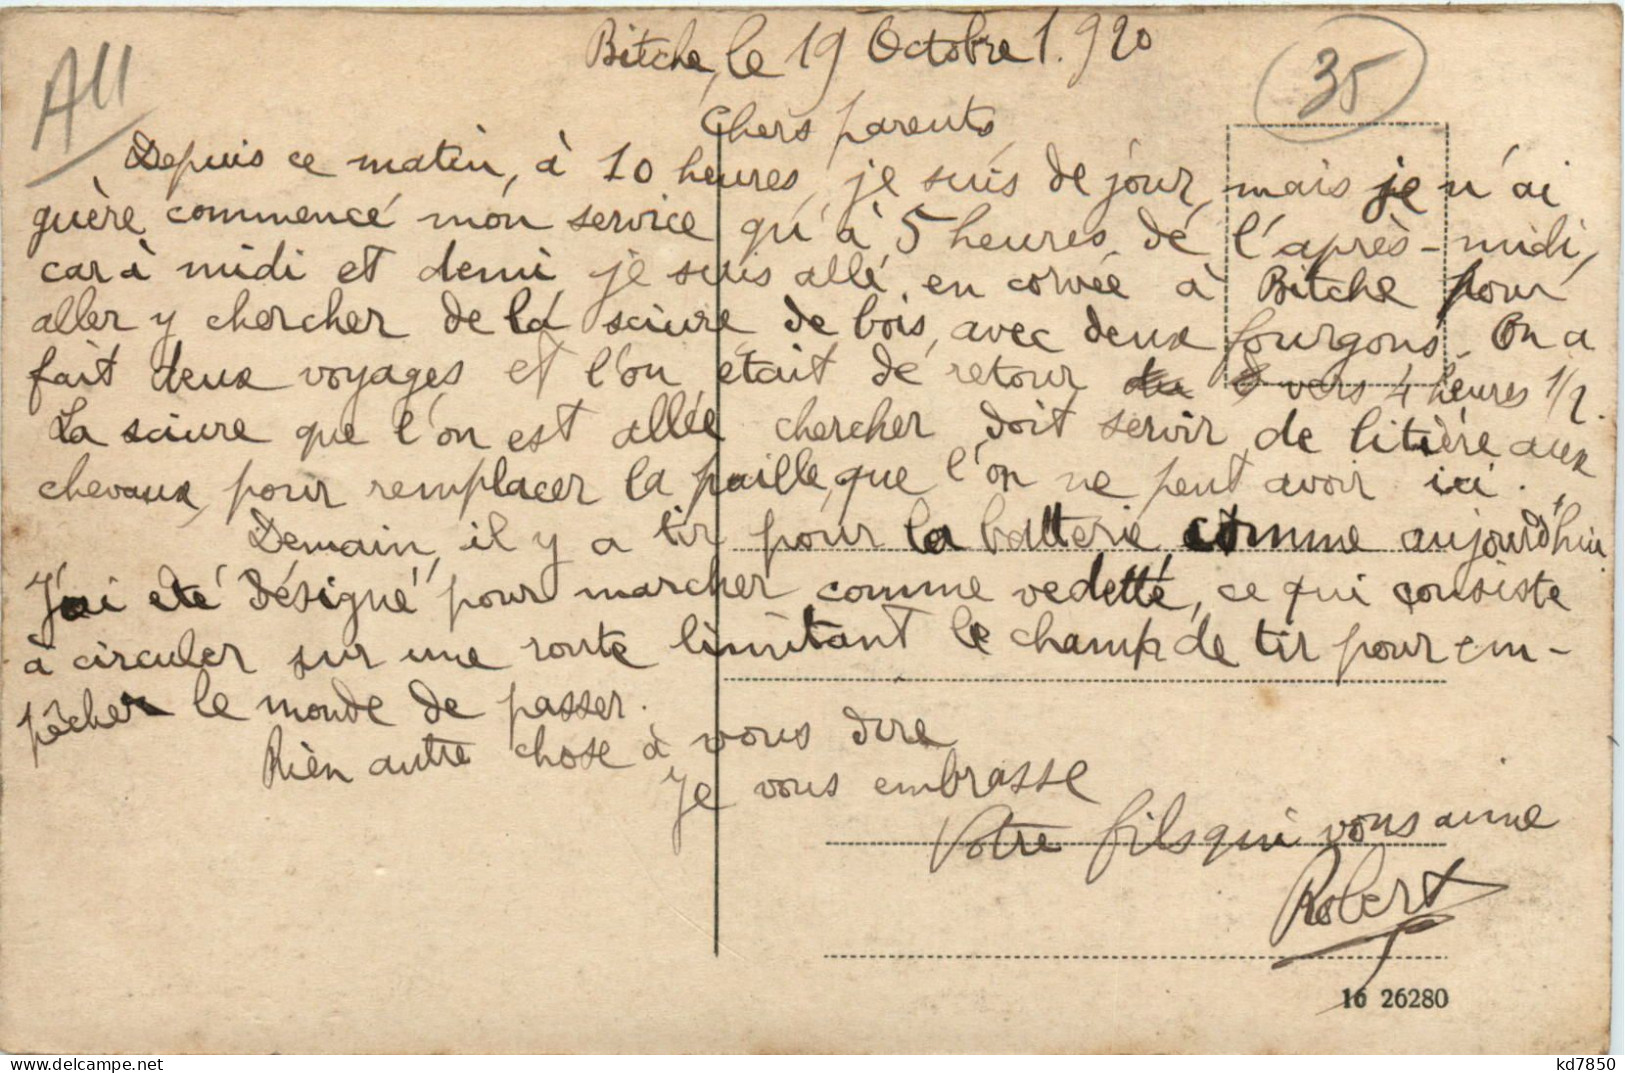 Bitche, le 19 Octobre 1.920
A11
35
Chers parents,
Depuis ce matin, à 10 heures, je suis de jour, mais je n'ai
guère commencé mon service qu'à 5 heures de l'après-midi,
car à midi et demi je suis allé en corvée à Bitche pour
aller y chercher de la sciure de bois, avec deux fourgons. On a
fait deux voyages et l'on était de retour vers 4 heures 1/2.
La sciure que l'on est allée chercher doit servir de litière aux
chevaux, pour remplacer la paille, que l'on ne peut avoir ici.
Demain, il y a tir pour la batterie comme aujourd'hui.
J'ai été désigné pour marcher comme vedette, ce qui consiste
à circuler sur une route limitant le champ de tir pour em-
pêcher le monde de passer.
Rien autre chose à vous dire
Je vous embrasse
Votre fils qui vous aime
Robert
16 26280
kd7850